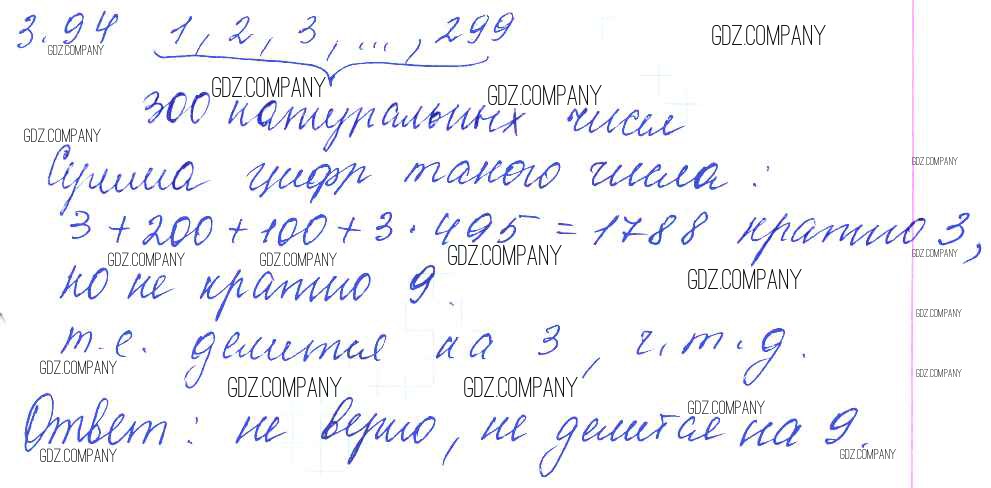 3.94 1, 2, 3, ..., 299
GDZ.COMPANY GDZ.COMPANY
GDZ.COMPANY GDZ.COMPANY
300 натуральных чисел
GDZ.COMPANY
Сумма цифр такого числа: GDZ.COMPANY
3 + 200 + 100 + 3 · 495 = 1788 кратно 3,
GDZ.COMPANY GDZ.COMPANY GDZ.COMPANY GDZ.COMPANY
но не кратно 9. GDZ.COMPANY
GDZ.COMPANY
т.е. делится на 3, ч.т.д.
GDZ.COMPANY GDZ.COMPANY
GDZ.COMPANY GDZ.COMPANY
GDZ.COMPANY
Ответ: не верно, не делится на 9.
GDZ.COMPANY GDZ.COMPANY